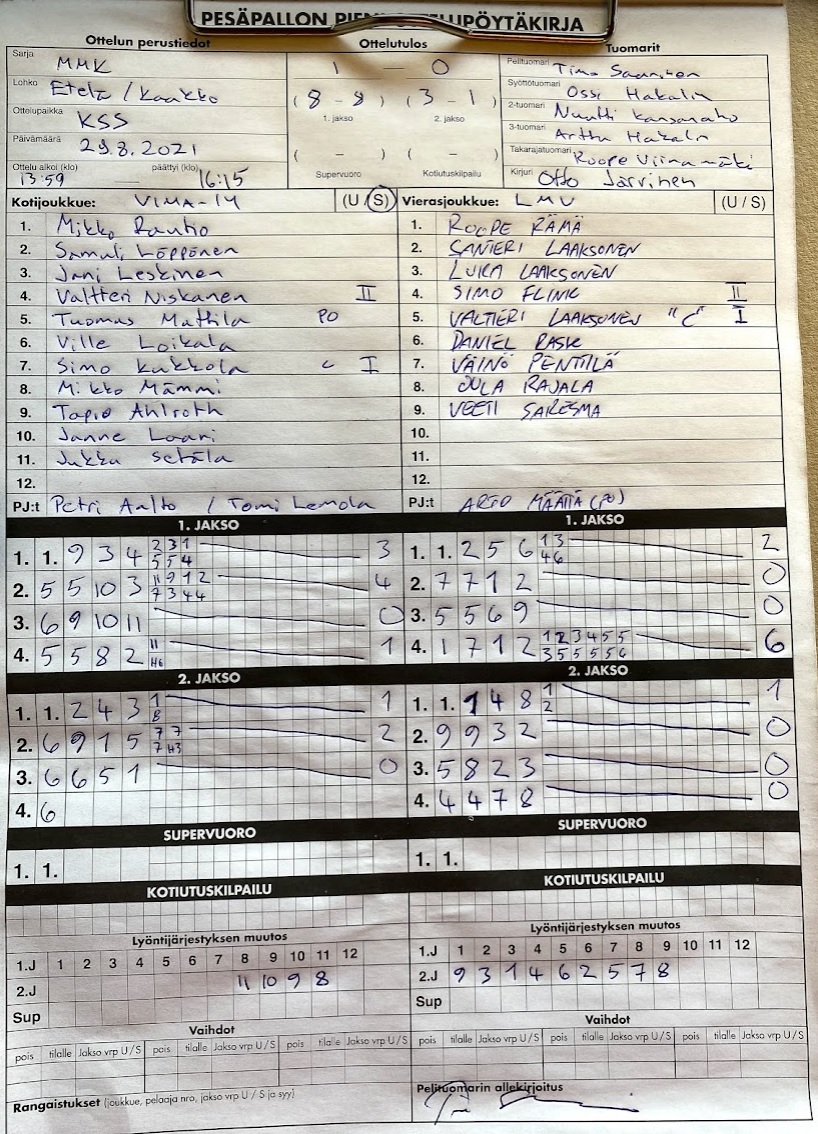 PESÄPALLON
Ottelun perustiedot
Sarja MMK
Lohko Etelä / Kaakko
Ottelupaikka KSS
Päivämäärä 29.8.2021
Ottelu alkoi (klo) päättyi (klo)
13:59 — 16:15
Ottelutulos
1 — 0
(8 - 8) (3 - 1)
1. jakso 2. jakso
( - ) ( - )
Supervuoro Kotiutuskilpailu
Tuomarit
Pelituomari Timo Saarinen
Syöttötuomari Ossi Hakalin
2-tuomari Nuutti Kansanaho
3-tuomari Arttu Hakala
Takarajatuomari Roope Viinamäki
Kirjuri Otto Järvinen
Kotijoukkue: VIMA-14 (U / S)
1. Mikko Rautio
2. Samuli Löppönen
3. Jani Leskinen
4. Valtteri Niskanen II
5. Tuomas Mattila PO
6. Ville Loikala
7. Simo Kukkola C I
8. Mikko Mämmi
9. Tapio Ahlroth
10. Janne Laari
11. Jukka Setälä
12.
PJ:t Petri Aalto / Tomi Lemola
Vierasjoukkue: LMV (U / S)
1. ROOPE RÄMÄ
2. SANTERI LAAKSONEN
3. LUKA LAAKSONEN
4. SIMO FLINK II
5. VALTTERI LAAKSONEN "C" I
6. DANIEL RASK
7. VÄINÖ PENTTILÄ
8. OULA RAJALA
9. VEETI SARESMA
10.
11.
12.
PJ:t ARTO MÄÄTTÄ (PO)
1. JAKSO
1. 1. 9 3 4 2 3 1 3
5 5 4
2. 5 5 10 3 11 9 1 2 4
7 3 4 4
3. 6 9 10 11 0
4. 5 5 8 2 11 1
H6
1. JAKSO
1. 1. 2 5 6 1 3 2
4 6
2. 7 7 1 2 0
3. 5 5 6 9 0
4. 1 7 1 2 1 2 3 4 5 5 6
3 5 5 5 5 6
2. JAKSO
1. 1. 2 4 3 1 1
8
2. 6 9 1 5 7 7 2
7 H3
3. 6 6 5 1 0
4. 6
2. JAKSO
1. 1. 1 4 8 1 1
2
2. 9 9 3 2 0
3. 5 8 2 3 0
4. 4 4 7 8 0
SUPERVUORO
1. 1.
SUPERVUORO
1. 1.
KOTIUTUSKILPAILU
KOTIUTUSKILPAILU
Lyöntijärjestyksen muutos
1.J 1 2 3 4 5 6 7 8 9 10 11 12
2.J 11 10 9 8
Sup
Lyöntijärjestyksen muutos
1.J 1 2 3 4 5 6 7 8 9 10 11 12
2.J 9 3 1 4 6 2 5 7 8
Sup
Vaihdot
pois tilalle Jakso vrp U / S pois tilalle Jakso vrp U / S pois tilalle Jakso vrp U / S
Vaihdot
pois tilalle Jakso vrp U / S pois tilalle Jakso vrp U / S pois tilalle Jakso vrp U / S
Rangaistukset (joukkue, pelaaja nro, jakso vrp U / S ja syy)
Pelituomarin allekirjoitus